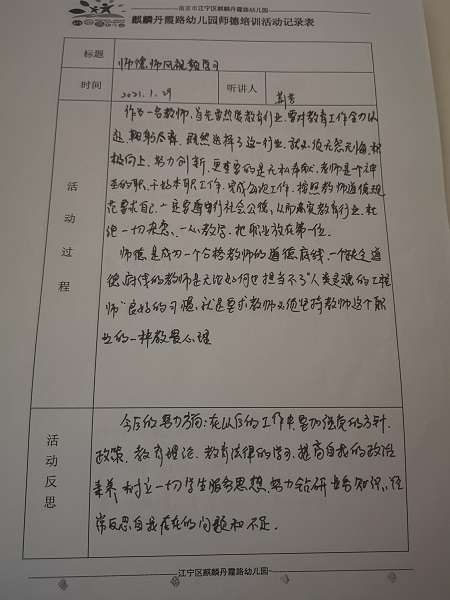 南京市江宁区麒麟丹霞路幼儿园
麒麟丹霞路幼儿园师德培训活动记录表
标题 师德师风视频学习
时间 2021.1.29 听讲人
活动过程
作为一名教师,首先要热爱教育行业,要对教育工作全力以
赴,鞠躬尽瘁,既然选择了这一行业,就必须无怨无悔,积
极向上,努力创新,更重要的是无私奉献,老师是一个神
圣的职,干好本职工作,完成各项工作,按照教师道德规
范要求自己,一定要遵守社会公德,从而忠实教育行业,杜
绝一切杂念,一心教学,把职业放在第一位。
师德是成为一个合格教师的道德底线,一个缺乏道
德底线的教师是无论如何也担当不了"人类灵魂的工程
师"良好的习惯,就是要求教师必须坚持教师这个职
业的一种敬畏心理
活动反思
今后的努力方向:在以后的工作中要加强党的方针、
政策、教育理论、教育法律的学习,提高自我的政治
素养,树立一切学生服务思想,努力钻研业务知识,经
常反思自我存在的问题和不足.
江宁区麒麟丹霞路幼儿园